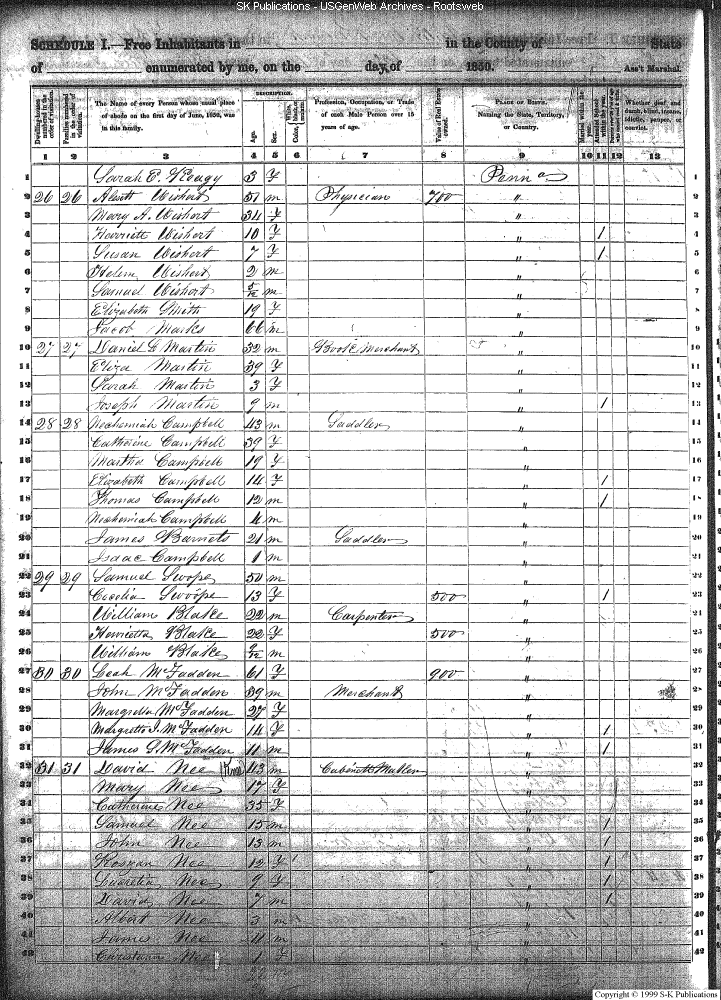 SK Publications - USGenWeb Archives - Rootsweb
SCHEDULE I.—Free Inhabitants in in the County of State
of enumerated by me, on the day of 1850. Ass't Marshal.
DESCRIPTION.
Dwelling-houses numbered in the order of visitation. Families numbered in the order of visitation. The Name of every Person whose usual place of abode on the first day of June, 1850, was in this family. Age. Sex. Color, White, black, or mulatto. Profession, Occupation, or Trade of each Male Person over 15 years of age. Value of Real Estate owned. PLACE OF BIRTH. Naming the State, Territory, or Country. Married within the year. Attended School within the year. Whether deaf and dumb, blind, insane, idiotic, pauper, or convict.
1 2 3 4 5 6 7 8 9 10 11 12 13
1 Sarah E. Keagy 3 F Penna 1
2 26 26 Wishart 51 m Physician 700 " 2
3 Mary A. Wishart 34 F " 3
4 Harriett Wishart 10 F " 1 4
5 Susan Wishart 7 F " 1 5
6 Wishart 2 m " 6
7 Samuel Wishart 5/12 m " 7
8 Elizabeth Smith 19 F " 8
9 Jacob Marks 66 m " 9
10 27 27 Daniel G Martin 32 m Book Merchant " 10
11 Eliza Martin 39 F " 11
12 Sarah Martin 3 F " 12
13 Joseph Martin 9 m " 1 13
14 28 28 Nechemiah Campbell 43 m Saddler " 14
15 Catherine Campbell 39 F " 15
16 Martha Campbell 19 F " 16
17 Elizabeth Campbell 14 F " 1 17
18 Thomas Campbell 12 m " 1 18
19 Nechemiah Campbell 4 m " 19
20 James Barnets 21 m Saddler " 20
21 Isaac Campbell 1 m " 21
22 29 29 Samuel Swope 50 m " 22
23 Cecelia Swoope 13 F 500 " 1 23
24 William Blake 22 m Carpenter " 24
25 Henrietta Blake 22 F 500 " 25
26 William Blake 9/12 m " 26
27 30 30 Leah McFadden 61 F 900 " 27
28 John McFadden 39 m Merchant " 28
29 Margretta McFadden 27 F " 29
30 Margretta J. McFadden 14 F " 1 30
31 James S. McFadden 11 m " 1 31
32 31 31 David Nee 43 m Cabinet Maker " 32
33 Mary Nee 17 F " 33
34 Catherine Nee 35 F " 34
35 Samuel Nee 15 m " 1 35
36 John Nee 13 m " 1 36
37 Nee 12 F " 1 37
38 Lucretia Nee 9 F " 1 38
39 David Nee 7 m " 1 39
40 Nee 3 m " 40
41 James Nee m " 41
42 Nee 1 F " 42
Copyright © 1999 S-K Publications